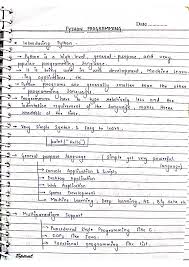 Date:
PYTHON PROGRAMMING
Introducing Python -
Python is a high level, general-purpose, and very
popular programming language.
It is being used in web development, Machine learning
applications etc.
Python language are generally smaller than the
other programming languages.
Programmers have to type relatively less and the
indentation requirement of the language, makes them
readable all the time.
Very Simple Syntax & Easy to learn.
print("Hello")
General purpose language (simple yet very powerful
language)
Console Application & Scripts
Desktop Application
Web Application
Game Development
Machine Learning, Deep Learning
Multiparadigm Support
Procedural Style Programming like C.
OOPs like Java.
Functional programming like List.